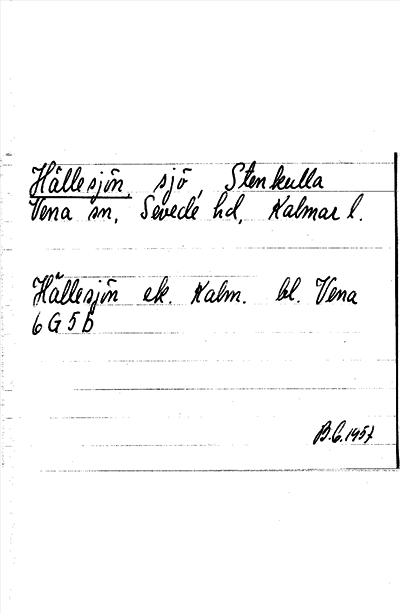 Hällesjön, sjö, Stenkulla
Vena sn, Sevede hd, Kalmar l.
Hällesjön ek. Kalm. bl. Vena
6 G 5 b
B.G. 1957